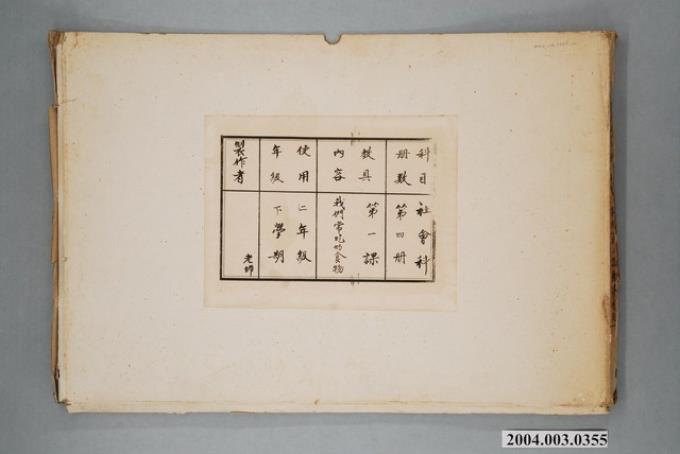 科目
冊數
社會科
第四冊
教具
內容
第一課
我們常吃的食物
使用
年級
二年級
下學期
製作者
老師
2004.003.0355